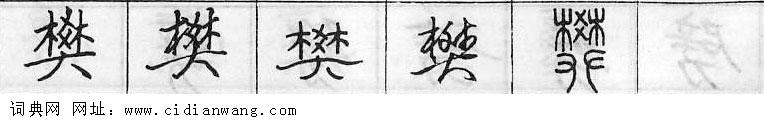 樊 樊 樊 樊 樊
词典网 网址：www.cidianwang.com